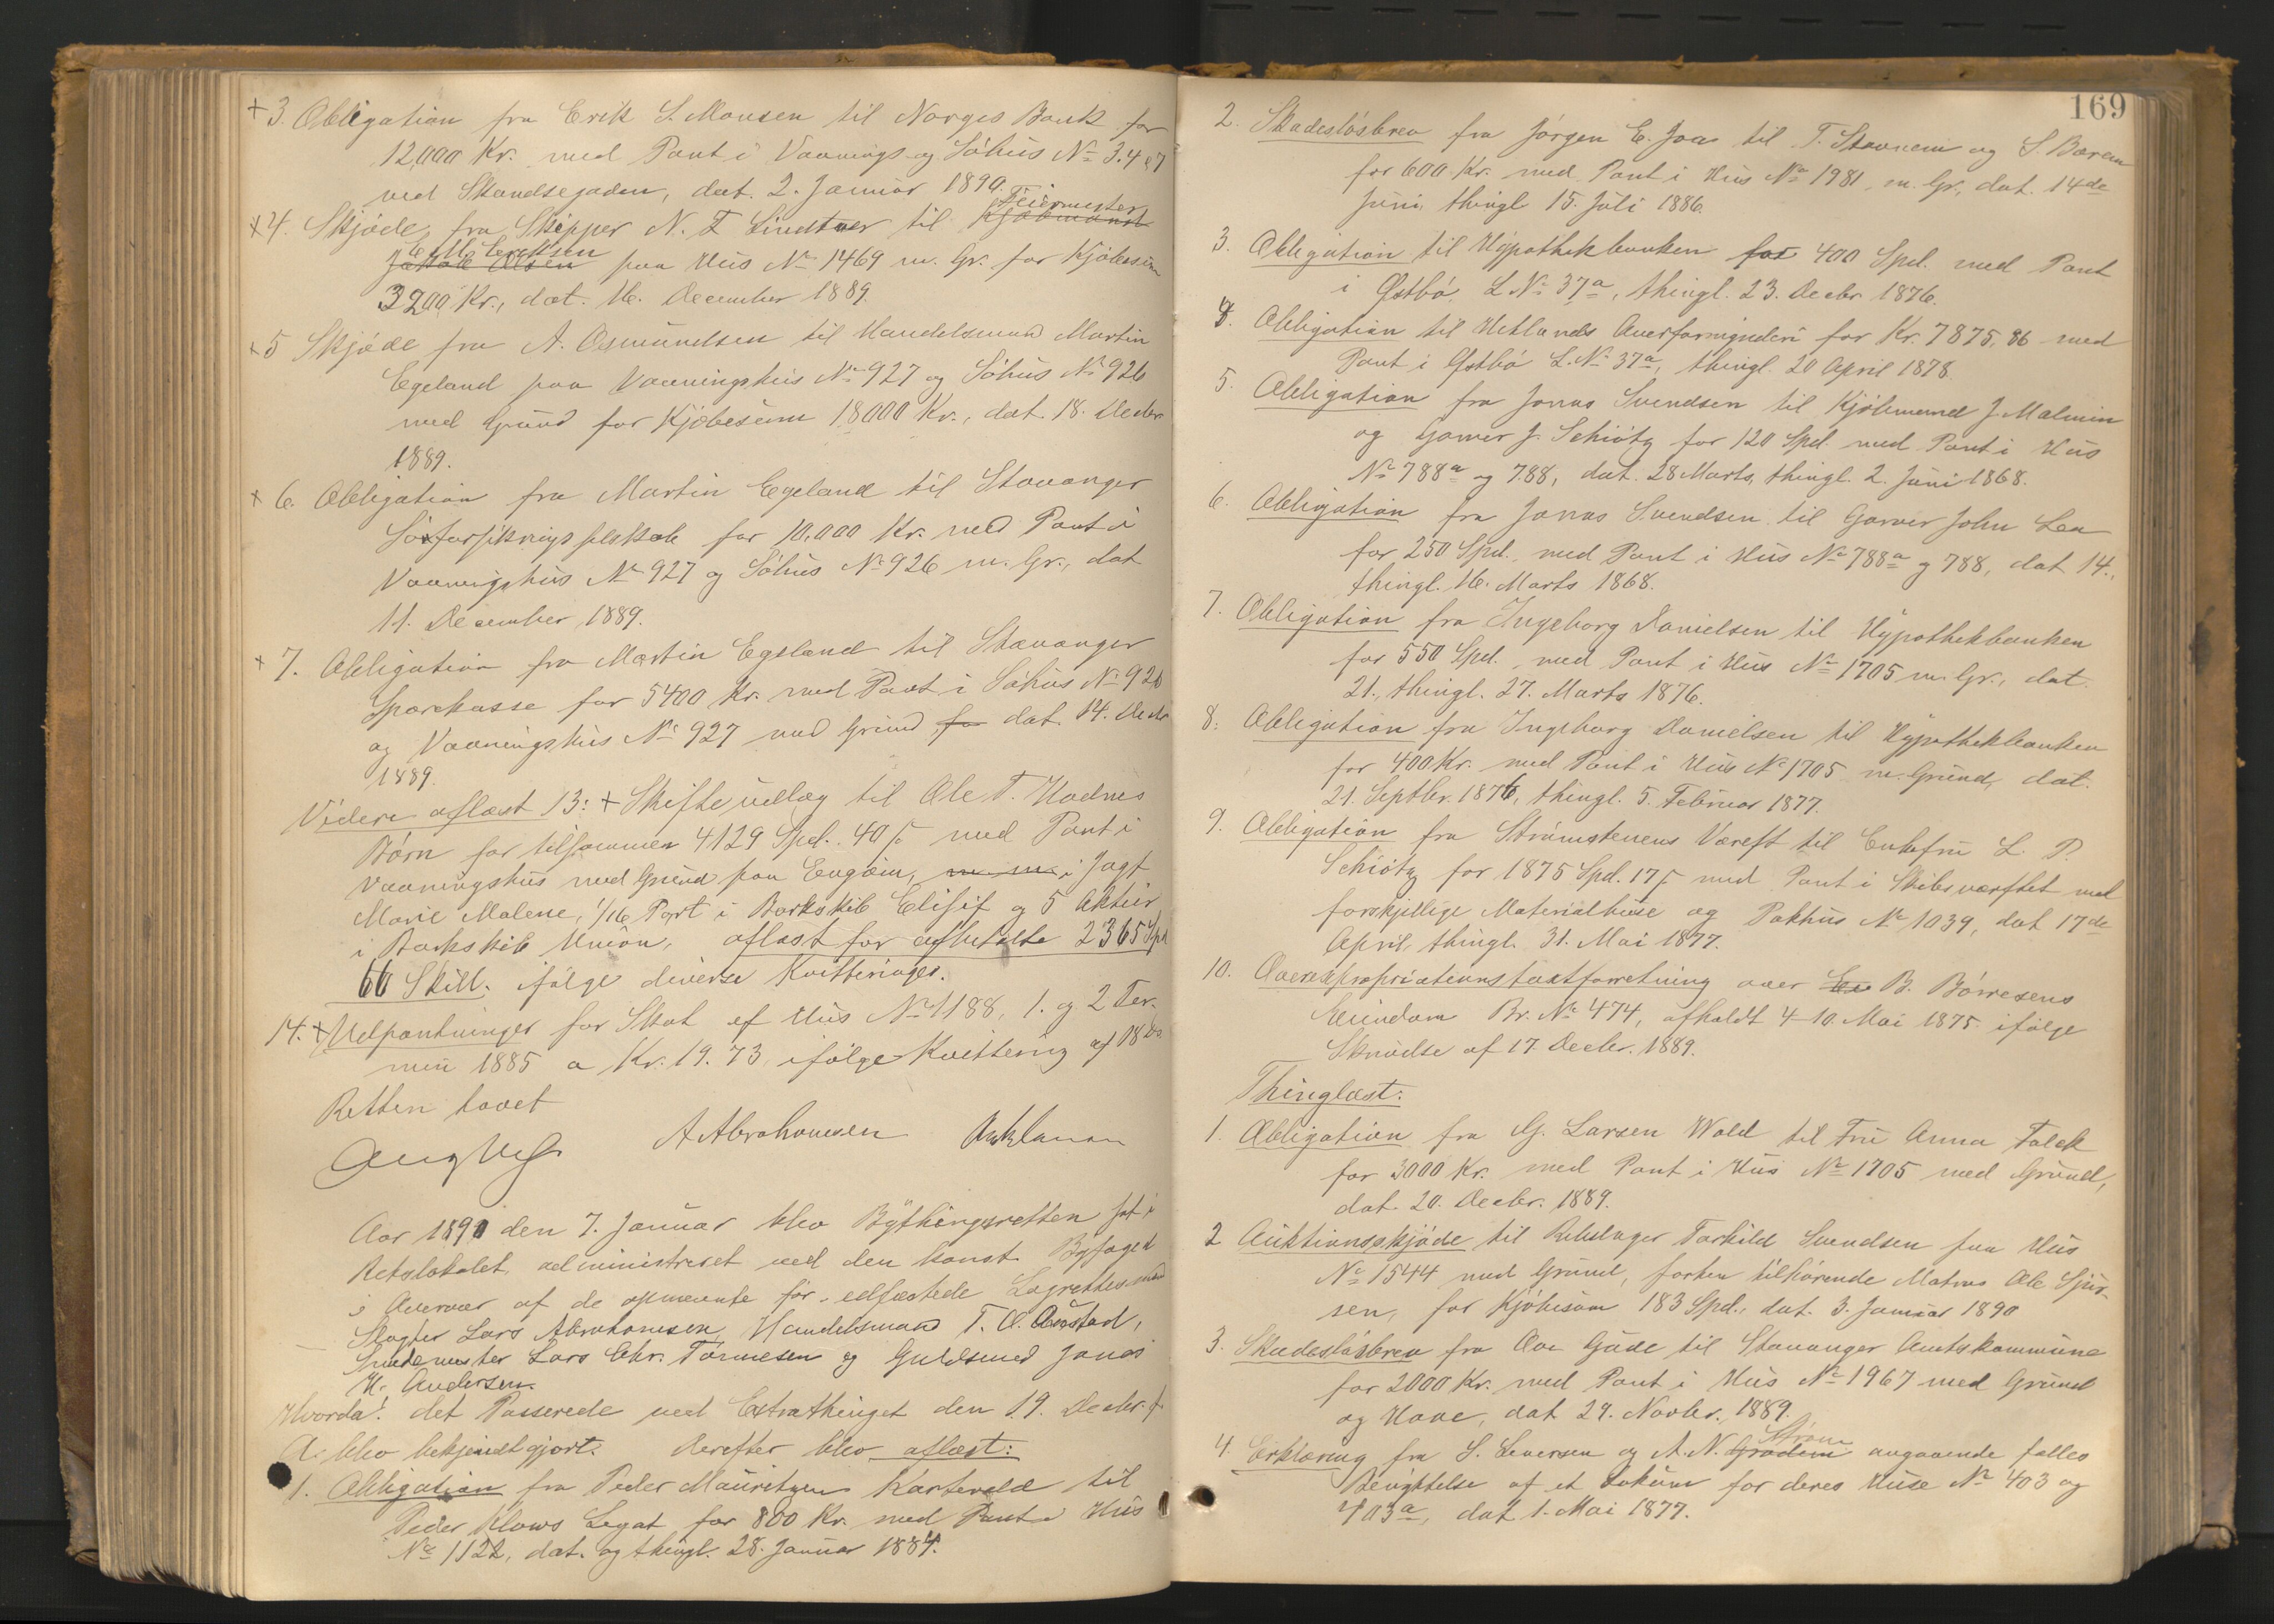 +3. Obligation fra Erik S. Monsen til Norges Bank for
12,000 Kr. med Pant i Vaanings og Söhus No 3.4 & 7
ved Skandsegaden, dat. 2. Januar 1890.
+4. Skjöde fra Skipper N. T. Lindtner til Kjöbmand Feiermester
Jakob Olsen E. M. Ericksen paa Hus No 1469 m. Gr. for Kjöbesum
3200 Kr., dat. 16. December 1889.
+5 Skjöde fra A. Osmundsen til Handelsmand Martin
Egeland paa Vaaningshus No 927 og Söhus No 926
med Grund for Kjöbesum 18000 Kr., dat. 18. Decbr
1889.
+ 6. Obligation fra Martin Egeland til Stavanger
Söforsikringsselskab for 10,000 Kr. med Pant i
Vaaningshus No 927 og Söhus No 926 m. Gr., dat
11. December 1889.
+ 7. Obligation fra Martin Egeland til Stavanger
Sparekasse for 5400 Kr. med Pant i Söhus No 926
og Vaaningshus No 927 med Grund for dat. 14. Decbr
1889.
Videre aflæst 13: + Skifteudlæg til Ole T. Hodnes
Börn for tilsammen 4129 Spd. 40 ß med Pant i
Vaaningshus med Grund paa Engöen, i Jagt
Marie Malene, 1/16 Part i Barkskib Elisif og 5 Aktier
i Barkskib Union, aflæst for afbetalte 2365 Spd
60 Skill. ifölge diverse Kvitteringer.
14. + Udpantninger for Skat af Hus No 1188, 1. og 2 Ter-
min 1885 a Kr. 19.73 ifölge Kvittering af 18 ds.
Retten hævet
A Abrahamsen
Aar 1890 den 7. Januar blev Bythingsretten sat i
Retslokalet, administreret ved den konst. Byfoged
i Overvær af de opnævnte för edfæstede Lagrettesmænd
Slagter Lars Abrahamsen, Handelsmand T. O. Austad,
Smedemester Lars Chr. Tönnesen og Guldsmed Jonas
H. Andersen.
Hvorda! det Passerede ved Extrathinget den 19. Decbr. f.
A. blev bekjendtgjort. Derefter blev aflæst:
1. Obligation fra Peder Mauritzen Kartevold til
Peder Klows Legat for 800 Kr. med Pant i Hus
No 1122, dat. og thingl. 28. Januar 1884.
169
2. Skadeslösbrev fra Jörgen E. Joa til T. Stavnem og S. Barem
for 600 Kr. med Pant i Hus No 1981, m. Gr., dat. 14de
Juni, thingl. 15. Juli 1886.
3. Obligation til Hypothekbanken for 400 Spd. med Pant
i Östbö, L. No 37a, thingl. 23. Decbr 1876.
4. Obligation til Hetlands Overformynderi for Kr. 7875.86 med
Pant i Östbö L. No 37a, thingl. 20 April 1878.
5. Obligation fra Jonas Svendsen til Kjöbmand J. Malmin
og Garver J. Schiötz for 120 Spd. med Pant i Hus
No 788a og 788, dat. 28 Marts, thingl. 2. Juni 1868.
6. Obligation fra Jonas Svendsen til Garver John Lea
for 250 Spd. med Pant i Hus No 788a og 788, dat 14.,
thingl. 16. Marts 1868.
7. Obligation fra Ingeborg Danielsen til Hypothekbanken
for 550 Spd. med Pant i Hus No 1705 m. Gr., dat.
21. thingl. 27. Marts 1876.
8. Obligation fra Ingeborg Danielsen til Hypothekbanken
for 400 Kr. med Pant i Hus No 1705 m. Grund, dat.
21. Septbr. 1876, thingl. 5. Februar 1877.
9. Obligation fra Strömstenens Værft til Enkefru L. P.
Schiötz for 1875 Spd. 17 ß med Pant i Skibsværftet med
forskjellige Materialhuse og Pakhus No 1039, dat 17de
April, thingl. 31. Mai 1877.
10. Overexpropriationstaxtforretning over B. Börresens
Eiendom Br. No 474, afholdt 4-10. Mai 1875. ifölge
Skrivelse af 17. Decbr. 1889.
Thinglæst:
1. Obligation fra G. Larsen Wold til Fru Anna Falck
for 3000 Kr. med Pant i Hus No 1705 med Grund,
dat. 20. Decbr. 1889.
2 Auktionsskjöde til Rebslager Torkild Svendsen paa Hus
No 1544 med Grund, forhen tilhörende Matros Ole Sjur-
sen, for Kjöbesum 183 Spd., dat. 3. Januar 1890
3. Skadeslösbrev fra Ove Gude til Stavanger Amtskommune
for 2000 Kr. med Pant i Hus No 1967 med Grund
og Have, dat 29. Novbr. 1889.
4. Erklæring fra S. Seversen og A. N. Grödem Ström angaaende fælles
Benyttelse af et Lokum for deres Huse No 403 og
403a, dat 1. Mai 1877.